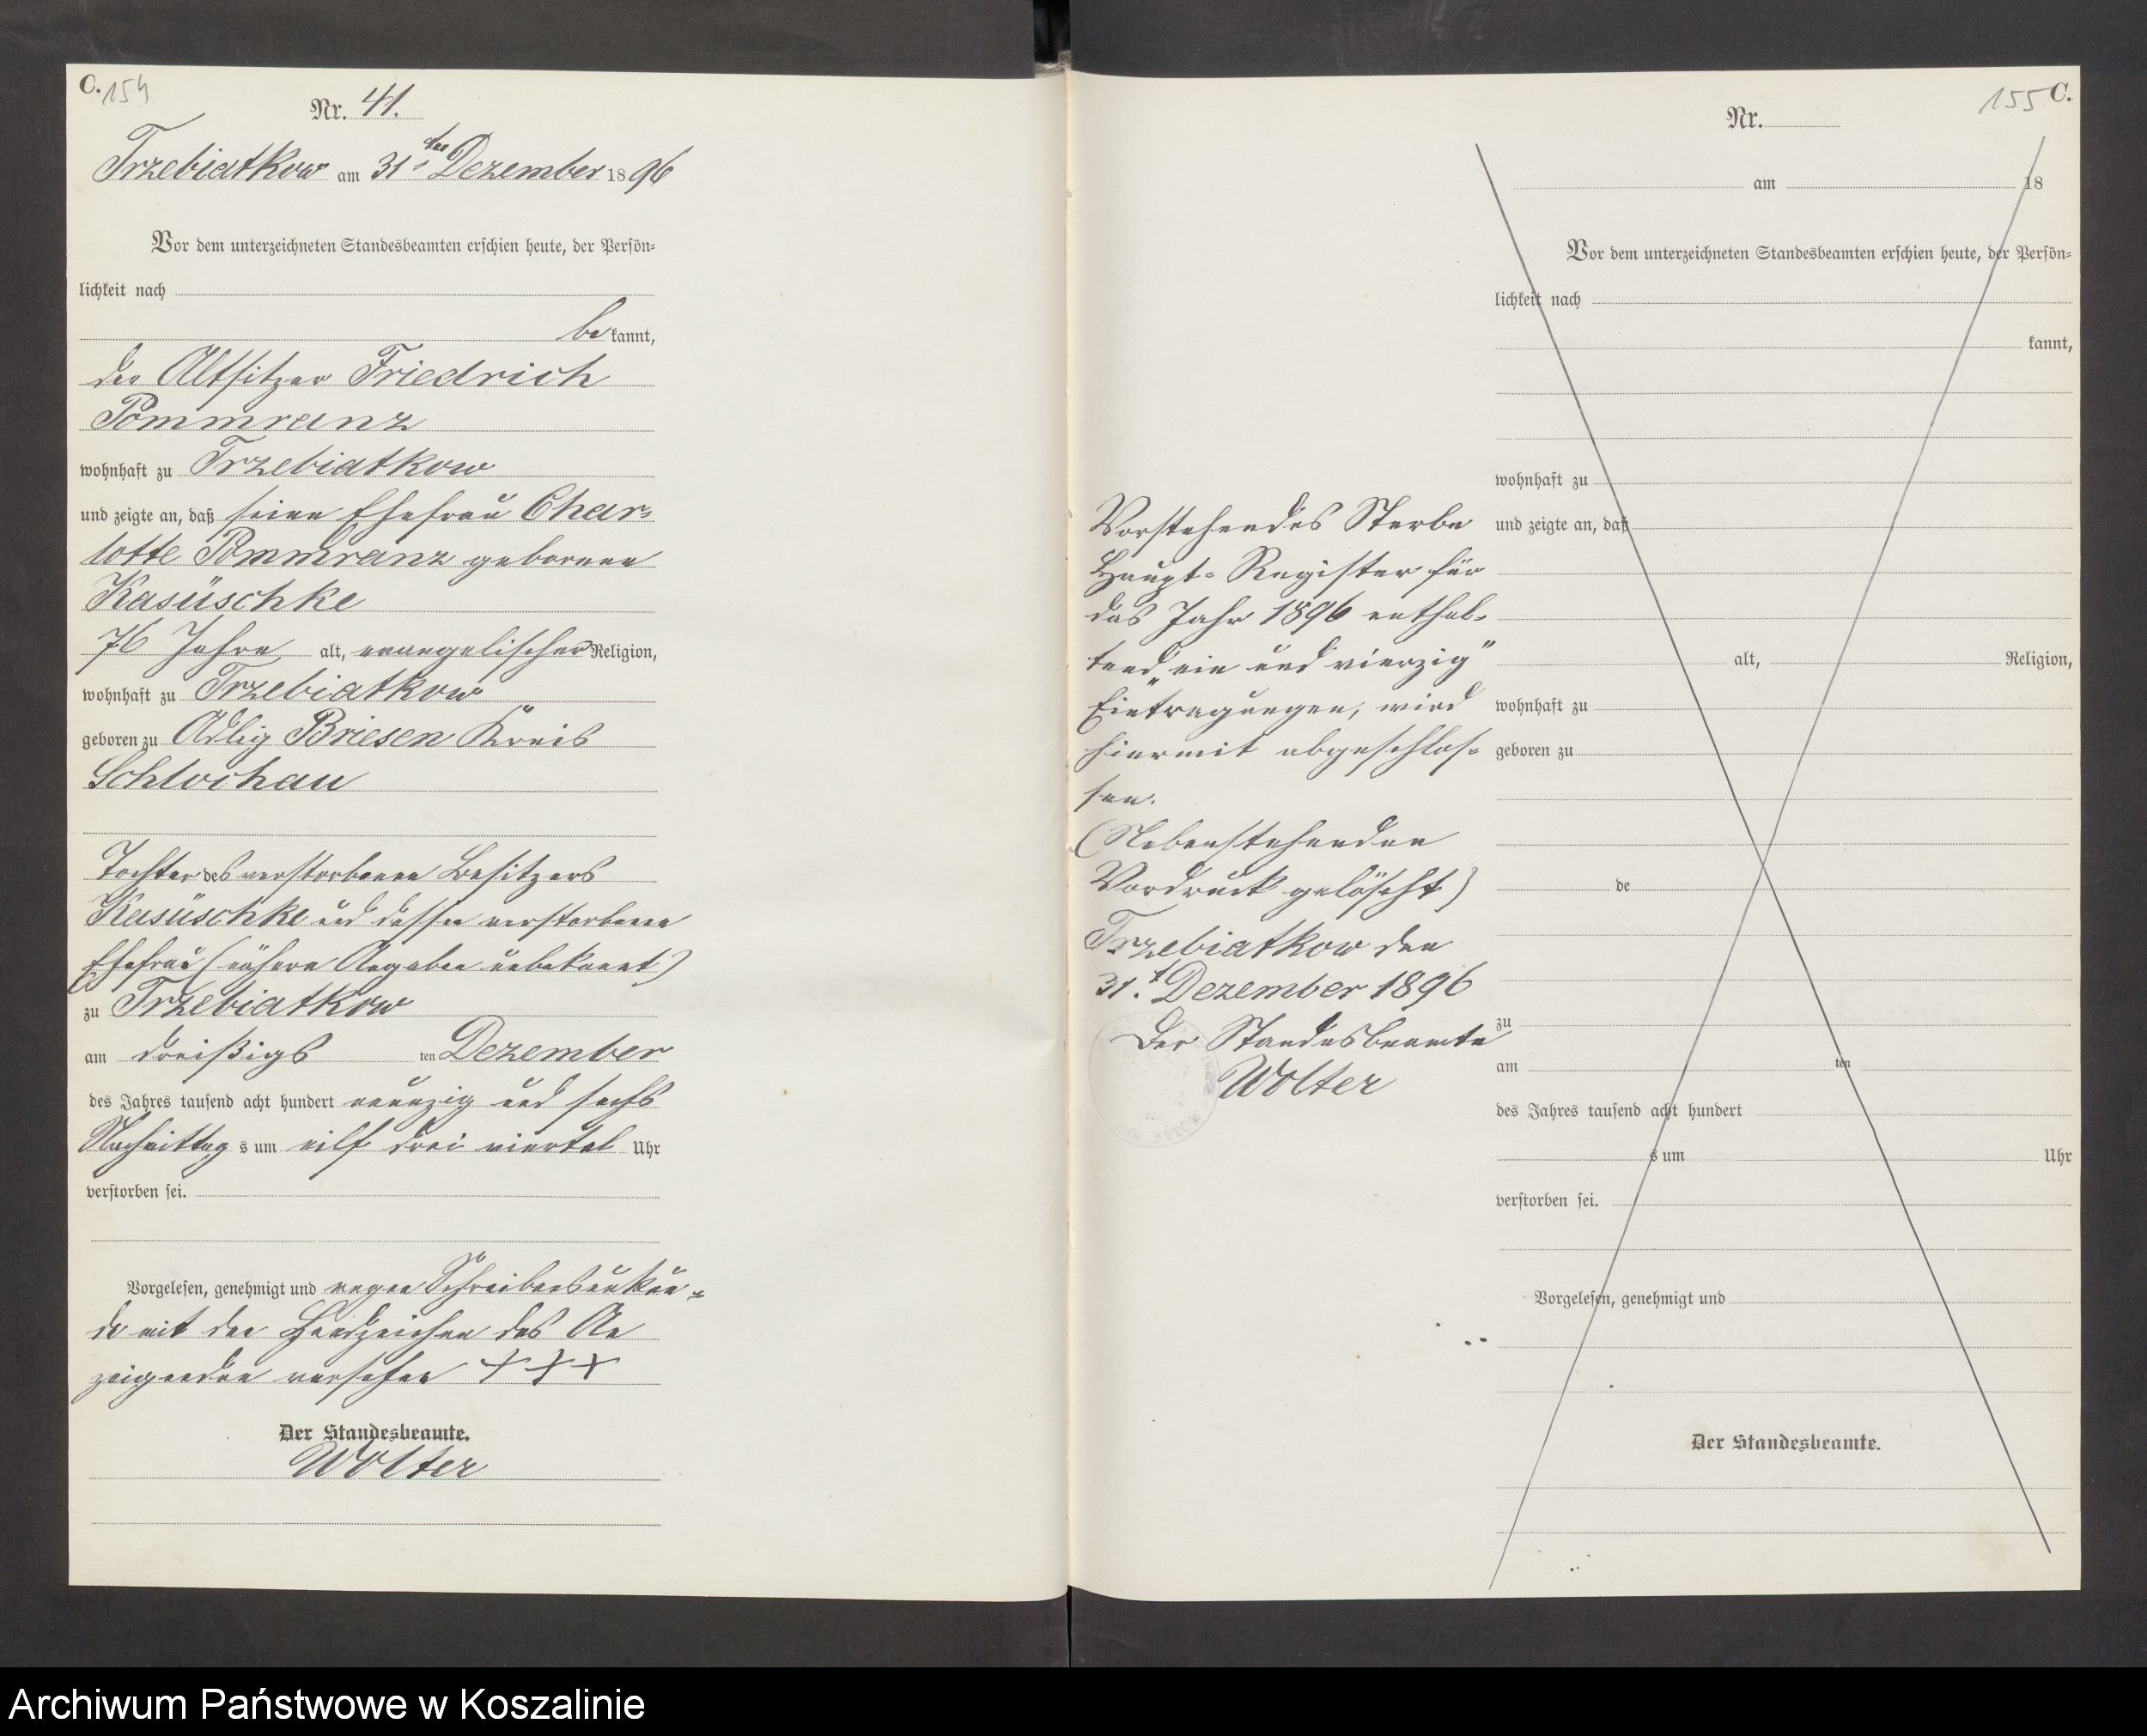 C. 154
Nr. 41.
Trzebiatkow am 31ten Dezember 1896
Vor dem unterzeichneten Standesbeamten erschien heute, der Persön-
lichkeit nach
be kannt,
der Altsitzer Friedrich
Pommranz
wohnhaft zu Trzebiatkow
und zeigte an, daß seine Ehefrau Char-
lotte Pommranz geborene
Kasüschke
76 Jahre alt, evangelischer Religion,
wohnhaft zu Trzebiatkow
geboren zu Adlig Briesen Kreis
Schlochau
Tochter des verstorbenen Besitzers
Kasüschke und dessen verstorbene
Ehefrau (nähere Angaben unbekannt)
zu Trzebiatkow
am dreißigs ten Dezember
des Jahres tausend acht hundert neunzig und sechs
Nachmittag s um eilf drei viertel Uhr
verstorben sei.
Vorgelesen, genehmigt und wegen Schreibensunkun-
de mit den Handzeichen des An
zeigenden versehen +++
Der Standesbeamte.
Wolter
155 C.
Nr.
am 18
Vor dem unterzeichneten Standesbeamten erschien heute, der Persön-
lichkeit nach
kannt,
wohnhaft zu
und zeigte an, daß
alt, Religion,
wohnhaft zu
geboren zu
de
zu
am ten
des Jahres tausend acht hundert
s um Uhr
verstorben sei.
Vorgelesen, genehmigt und
Der Standesbeamte.
Vorstehendes Sterbe
Haupt-Register für
das Jahr 1896 enthal-
tend „ein und vierzig"
Eintragungen, wird
hiermit abgeschlos-
sen.
(Nebenstehenden
Vordruck gelöscht)
Trzebiatkow den
31.t Dezember 1896
Der Standesbeamte
Wolter
Archiwum Państwowe w Koszalinie